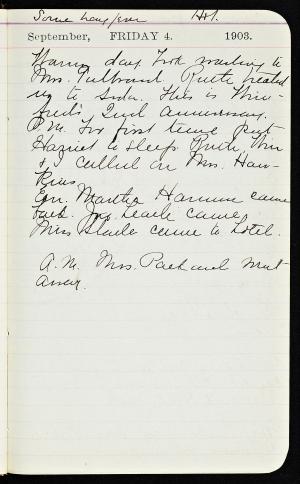 Some hay fever Hot.
September, FRIDAY 4. 1903.
Warm day. Took washing to
Mrs. Ruth treated
us to soda. This is Wini-
fred's 2nd anniversary.
P.M. For first time put
Harriet to sleep. Ruth, Win
& I called on Mrs. Haw-
kins.
Eve. Martha Harmon came
back. Jno. Searle came,
Miss Slade came to hotel.
A.M. Mrs. Packard went
away.